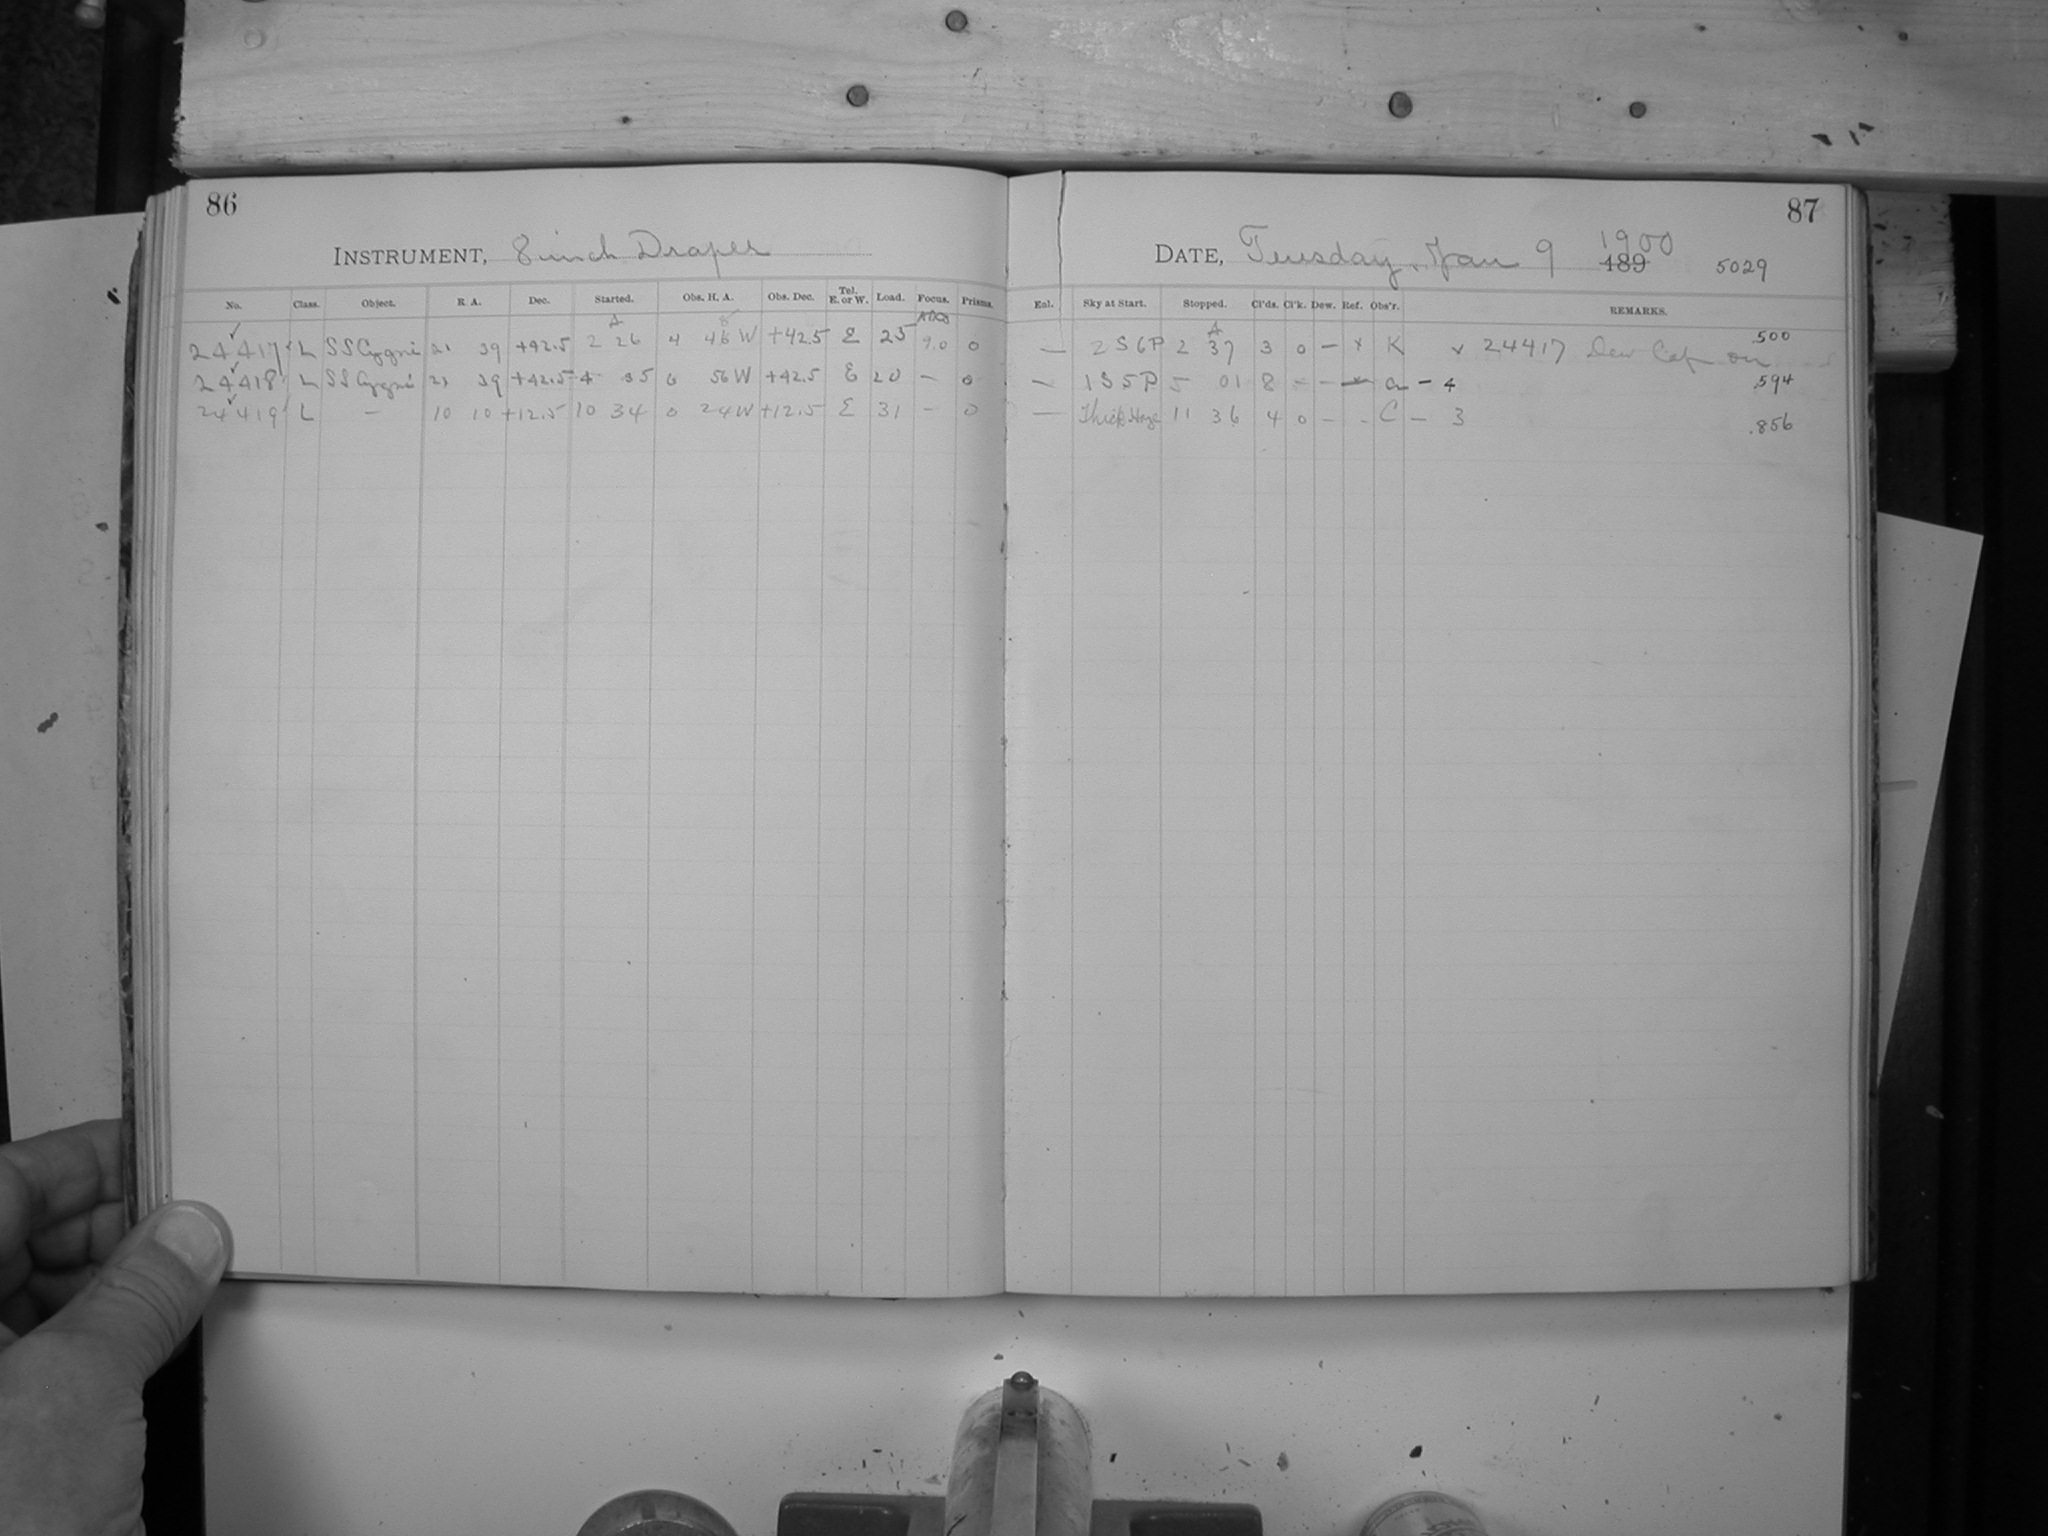 86
INSTRUMENT, 8 inch Draper
No. Class. Object. R. A. Dec. Started. Obs. H. A. Obs. Dec. Tel. E. or W. Load. Focus. Prisms.
24417 L SS Cygni 21 39 +42.5 2 26 4 46 W +42.5 E 25 9.0 0
24418 L SS Cygni 21 39 +42.5 4 35 6 56 W +42.5 E 20 – 0
24419 L – 10 10 +12.5 10 34 0 24 W +12.5 E 31 – 0
87
DATE, Tuesday, Jan 9 1900 189 5029
Enl. Sky at Start. Stopped. Cl'ds. Cl'k. Dew. Ref. Obs'r. REMARKS.
– 2 S 6 P 2 37 3 0 – x K x 24417 Dew Cap on .500
– 1 S 5 P 5 01 8 – – – a – 4 .594
– Thick Haze 11 36 4 0 – - C – 3 .856